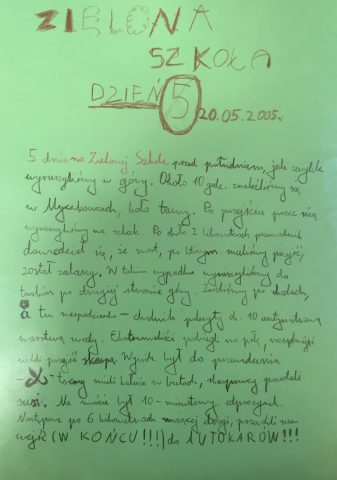 ZIELONA
SZKOŁA
DZIEŃ 5 20.05.2005r.
5 dnia na Zielonej Szkole przed południem, jak zwykle
wyruszyliśmy w góry. Około 10 godz. znaleźliśmy się
w Myczkowcach, koło tamy. Po przejściu przez nią
wyruszyliśmy na szlak. Po około 2 kilometrach przewodnik
dowiedział się, że most, po którym mieliśmy przejść,
został zalany. W takim wypadku wyruszyliśmy do
po drugiej stronie góry. Zeszliśmy po schodach,
a tu niespodzianka - chodnik pokryty ok. 10 centymetrową
warstwą wody. Ekstremaliści pobiegli na pałę, rozsądniejsi
woleli przejść skarpą. Wynik był do przewidzenia
- mieli kałuże w butach, skarpowcy pozostali
susi. Na moście był 10-minutowy odpoczynek.
Następnie po 6 kilometrach drogi, pozwolili nam
wejść (W KOŃCU!!!) do AUTOKARÓW!!!